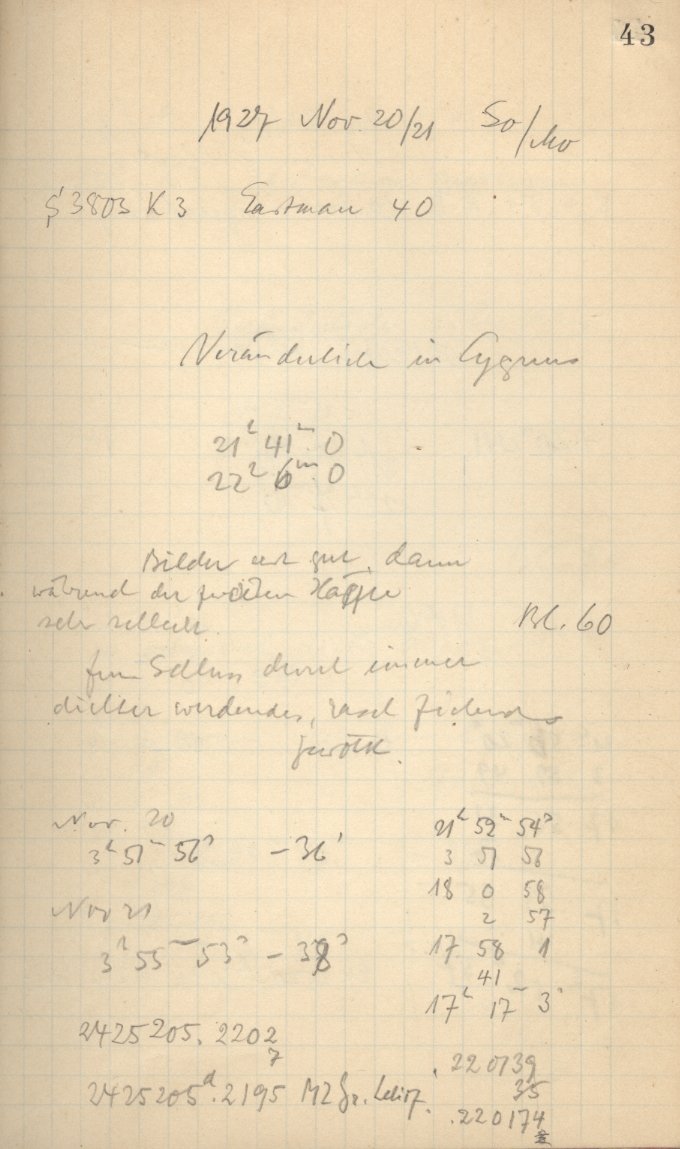 43
1927 Nov. 20/21 So/Mo
S 3803 K 3 Eastman 40
Veränderliche in Cygnus
21h 41m.0
22h 6m.0
Bilder erst gut, dann
während der zweiten Hälfte
sehr schlecht.
Bl. 60
Zum Schluss durch immer
dichter werdendes, rasch ziehendes
Gewölk.
Nov. 20
3h 51m 56s - 36s
Nov 21
3h 55m 53s - 38s
21h 52m 54s
3 51 56
18 0 58
2 57
17 58 1
41
17h 17m 3s
2425205.2202
7
2425205d.2195 MZ Gr. helioz.
.220139
35
.220174